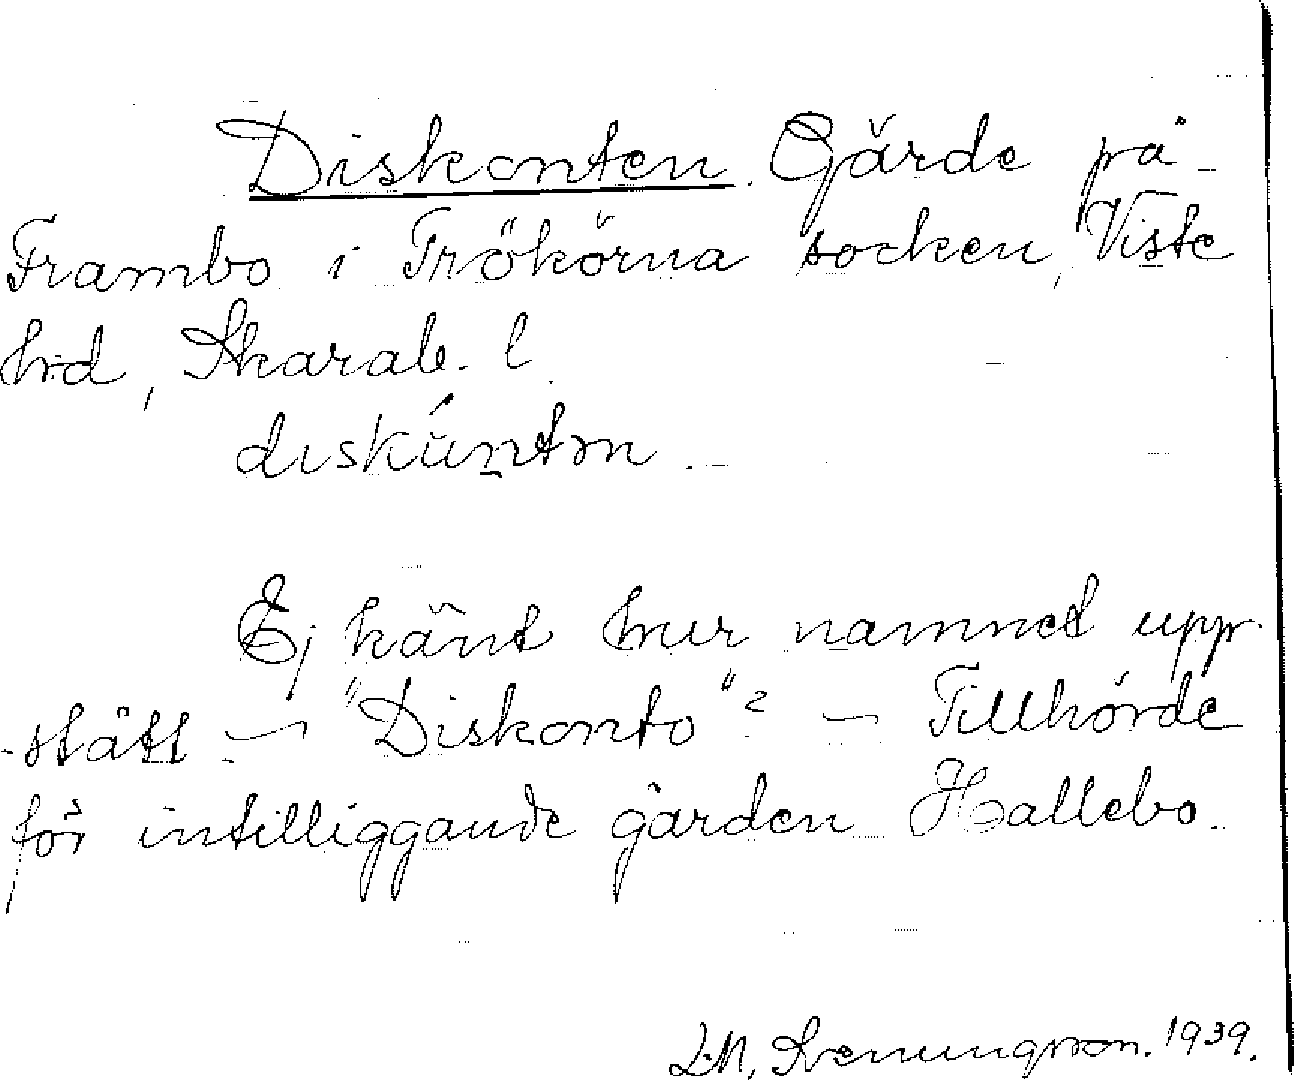 Diskonten. Gärde på
Frambo i Trökörna socken, Viste
hrd, Skarab. l.
diskúntǝn.
Ej känt hur namnet upp-
stått — "Diskonto"? — Tillhörde
för intilliggande gården Hallebo.
1939.